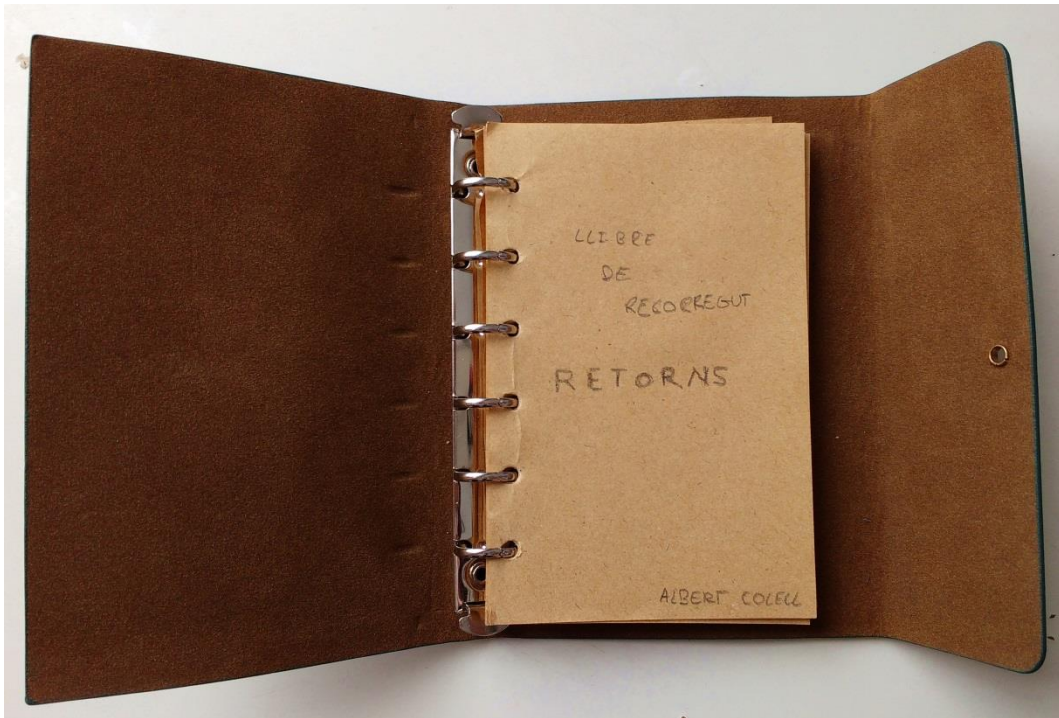 LLIBRE
DE
RECORREGUT
RETORNS
ALBERT COLELL